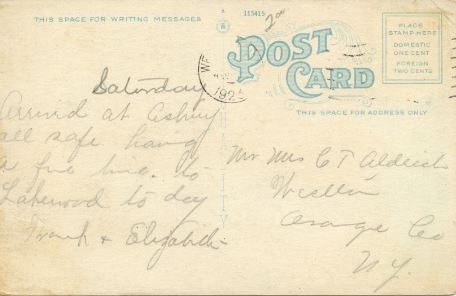 THIS SPACE FOR WRITING MESSAGES
115415
200
POST
CARD
PLACE
STAMP HERE
DOMESTIC
ONE CENT
FOREIGN
TWO CENTS
WE
1925
THIS SPACE FOR ADDRESS ONLY
Saturday
Arrived at Asbury
all safe having
a fine time. to
Lakewood to day
Frank & Elizabeth
Mr Mrs C T Aldrich
Otsego Co
NY.